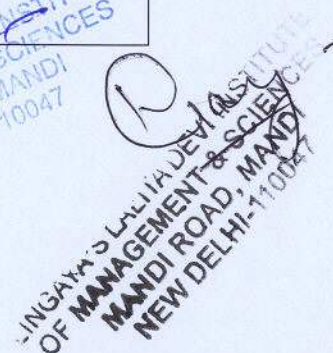 SCIENCES
MANDI
10047
LINGAYA'S LALITA DEVI INSTITUTE
OF MANAGEMENT & SCIENCES
MANDI ROAD, MANDI
NEW DELHI-110047